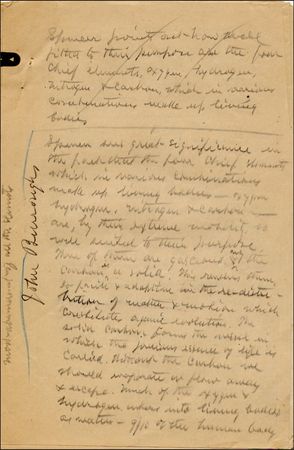 Spencer points out how well
fitted to their purpose are the four
Chief elements, oxygen, hydrogen,
nitrogen & carbon, which in various
combinations make up living
bodies
Spencer sees great significence in
the fact that the four Chief elements
which in various combinations
make up living bodies — oxygen
hydrogen, nitrogen & carbon —
are, by their extreme mobility, so
well suited to their purpose.
Three of them are gaseous, the
Carbon, a solid. This renders them
so and adaptive in the re-distri-
bution of matter & motion which
constitutes organic evolution. The
solid Carbon forms the vessel in
which the precious essence of life is
carried. Without the Carbon we
should evaporate or flow away
& escape. Much of the oxygen &
hydrogen enters into living bodies
as water – 9/10 of the human body
John Burroughs